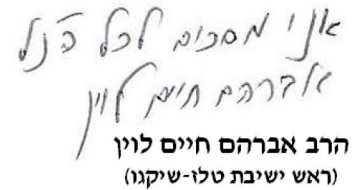 אני מסכים לכל הנ״ל
אברהם חיים לוין
הרב אברהם חיים לוין
(ראש ישיבת טלז-שיקגו)